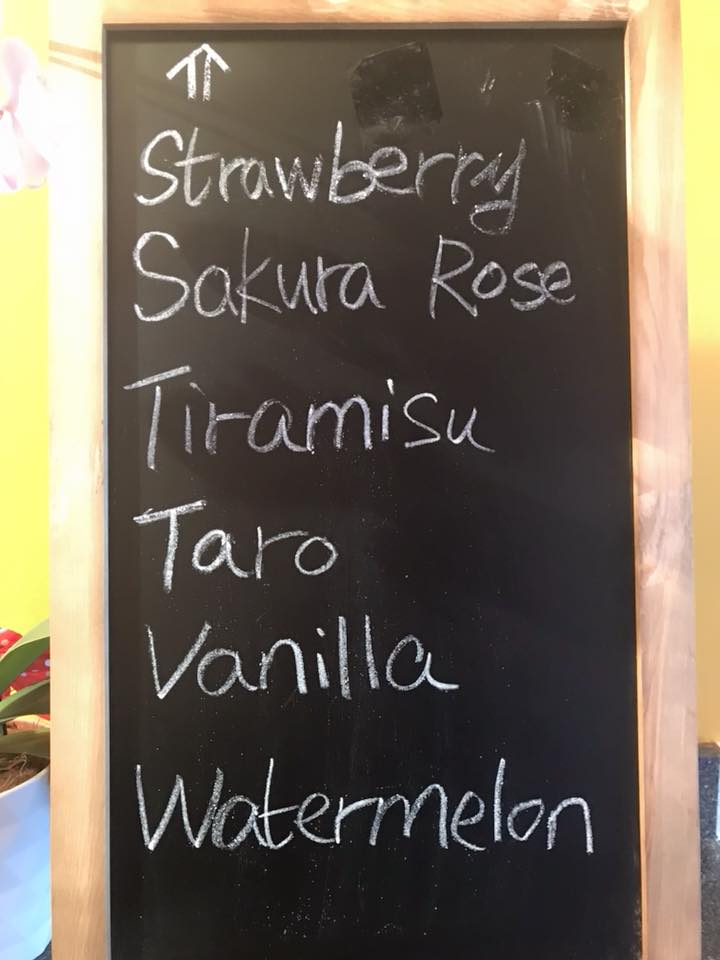 Strawberry
Sakura Rose
Tiramisu
Taro
Vanilla
Watermelon